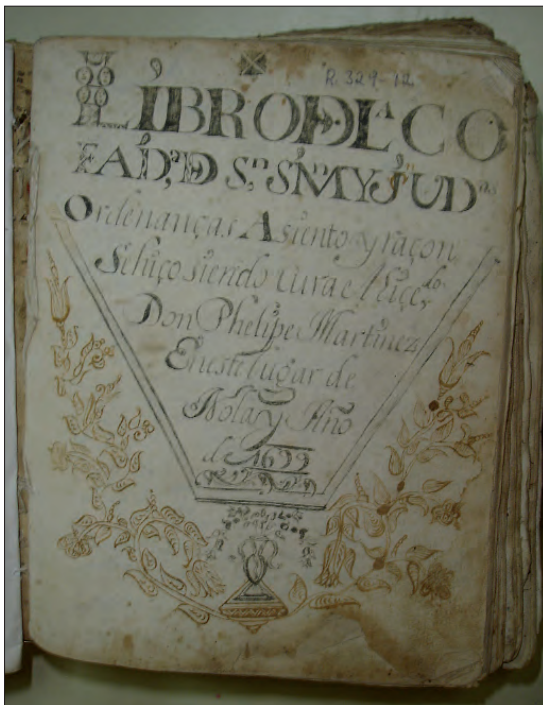 R. 329-12
LIBRO DE LA CO
FAD,ᵃ D Sⁿ SIMᴺ Y JUDᵃˢ
Ordenanças Asiento y raçon
Sehiço siendo Cura el Liçe,ᵈᵒ
Don Phelipe Martinez
Eneste lugar de
y Año
de 1699